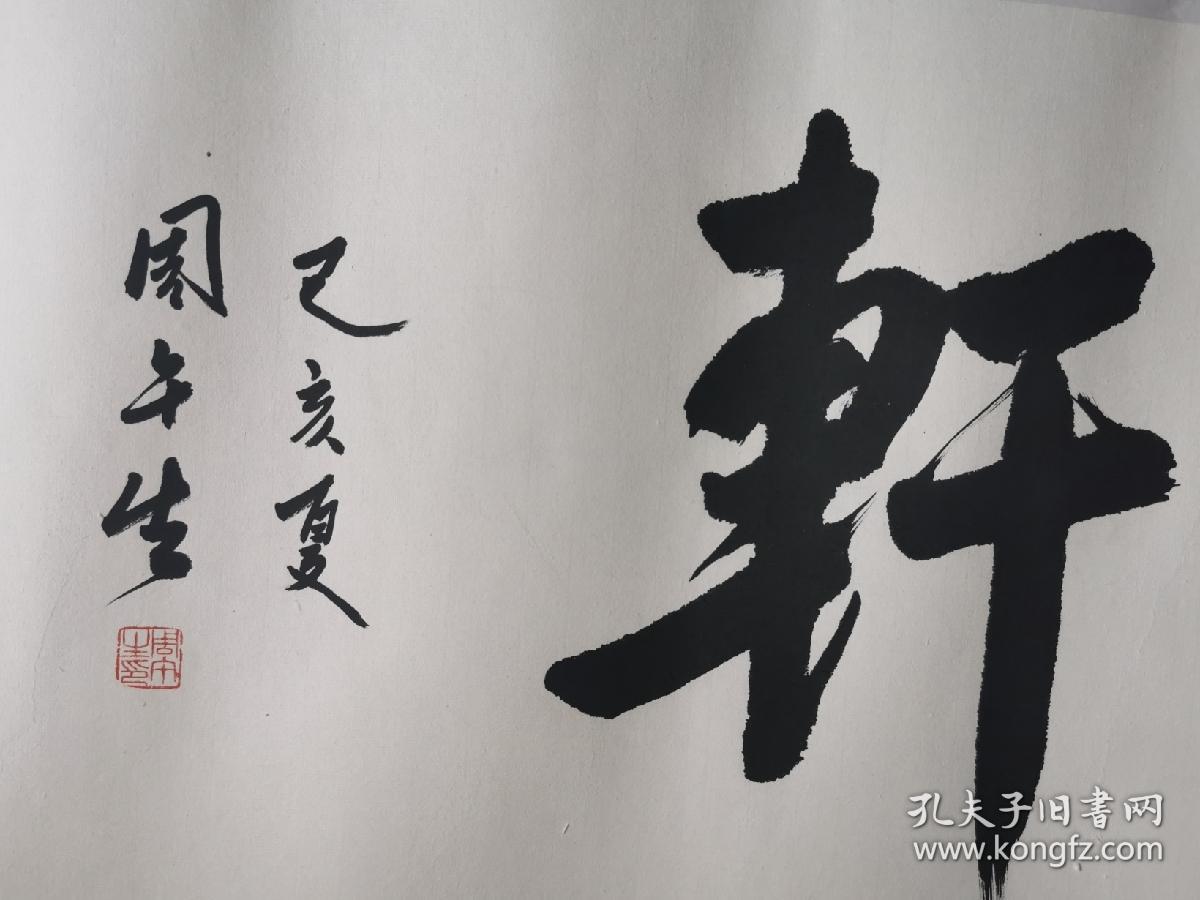 軒
己亥夏
周午生
周午生印
孔夫子旧書网
www.kongfz.com